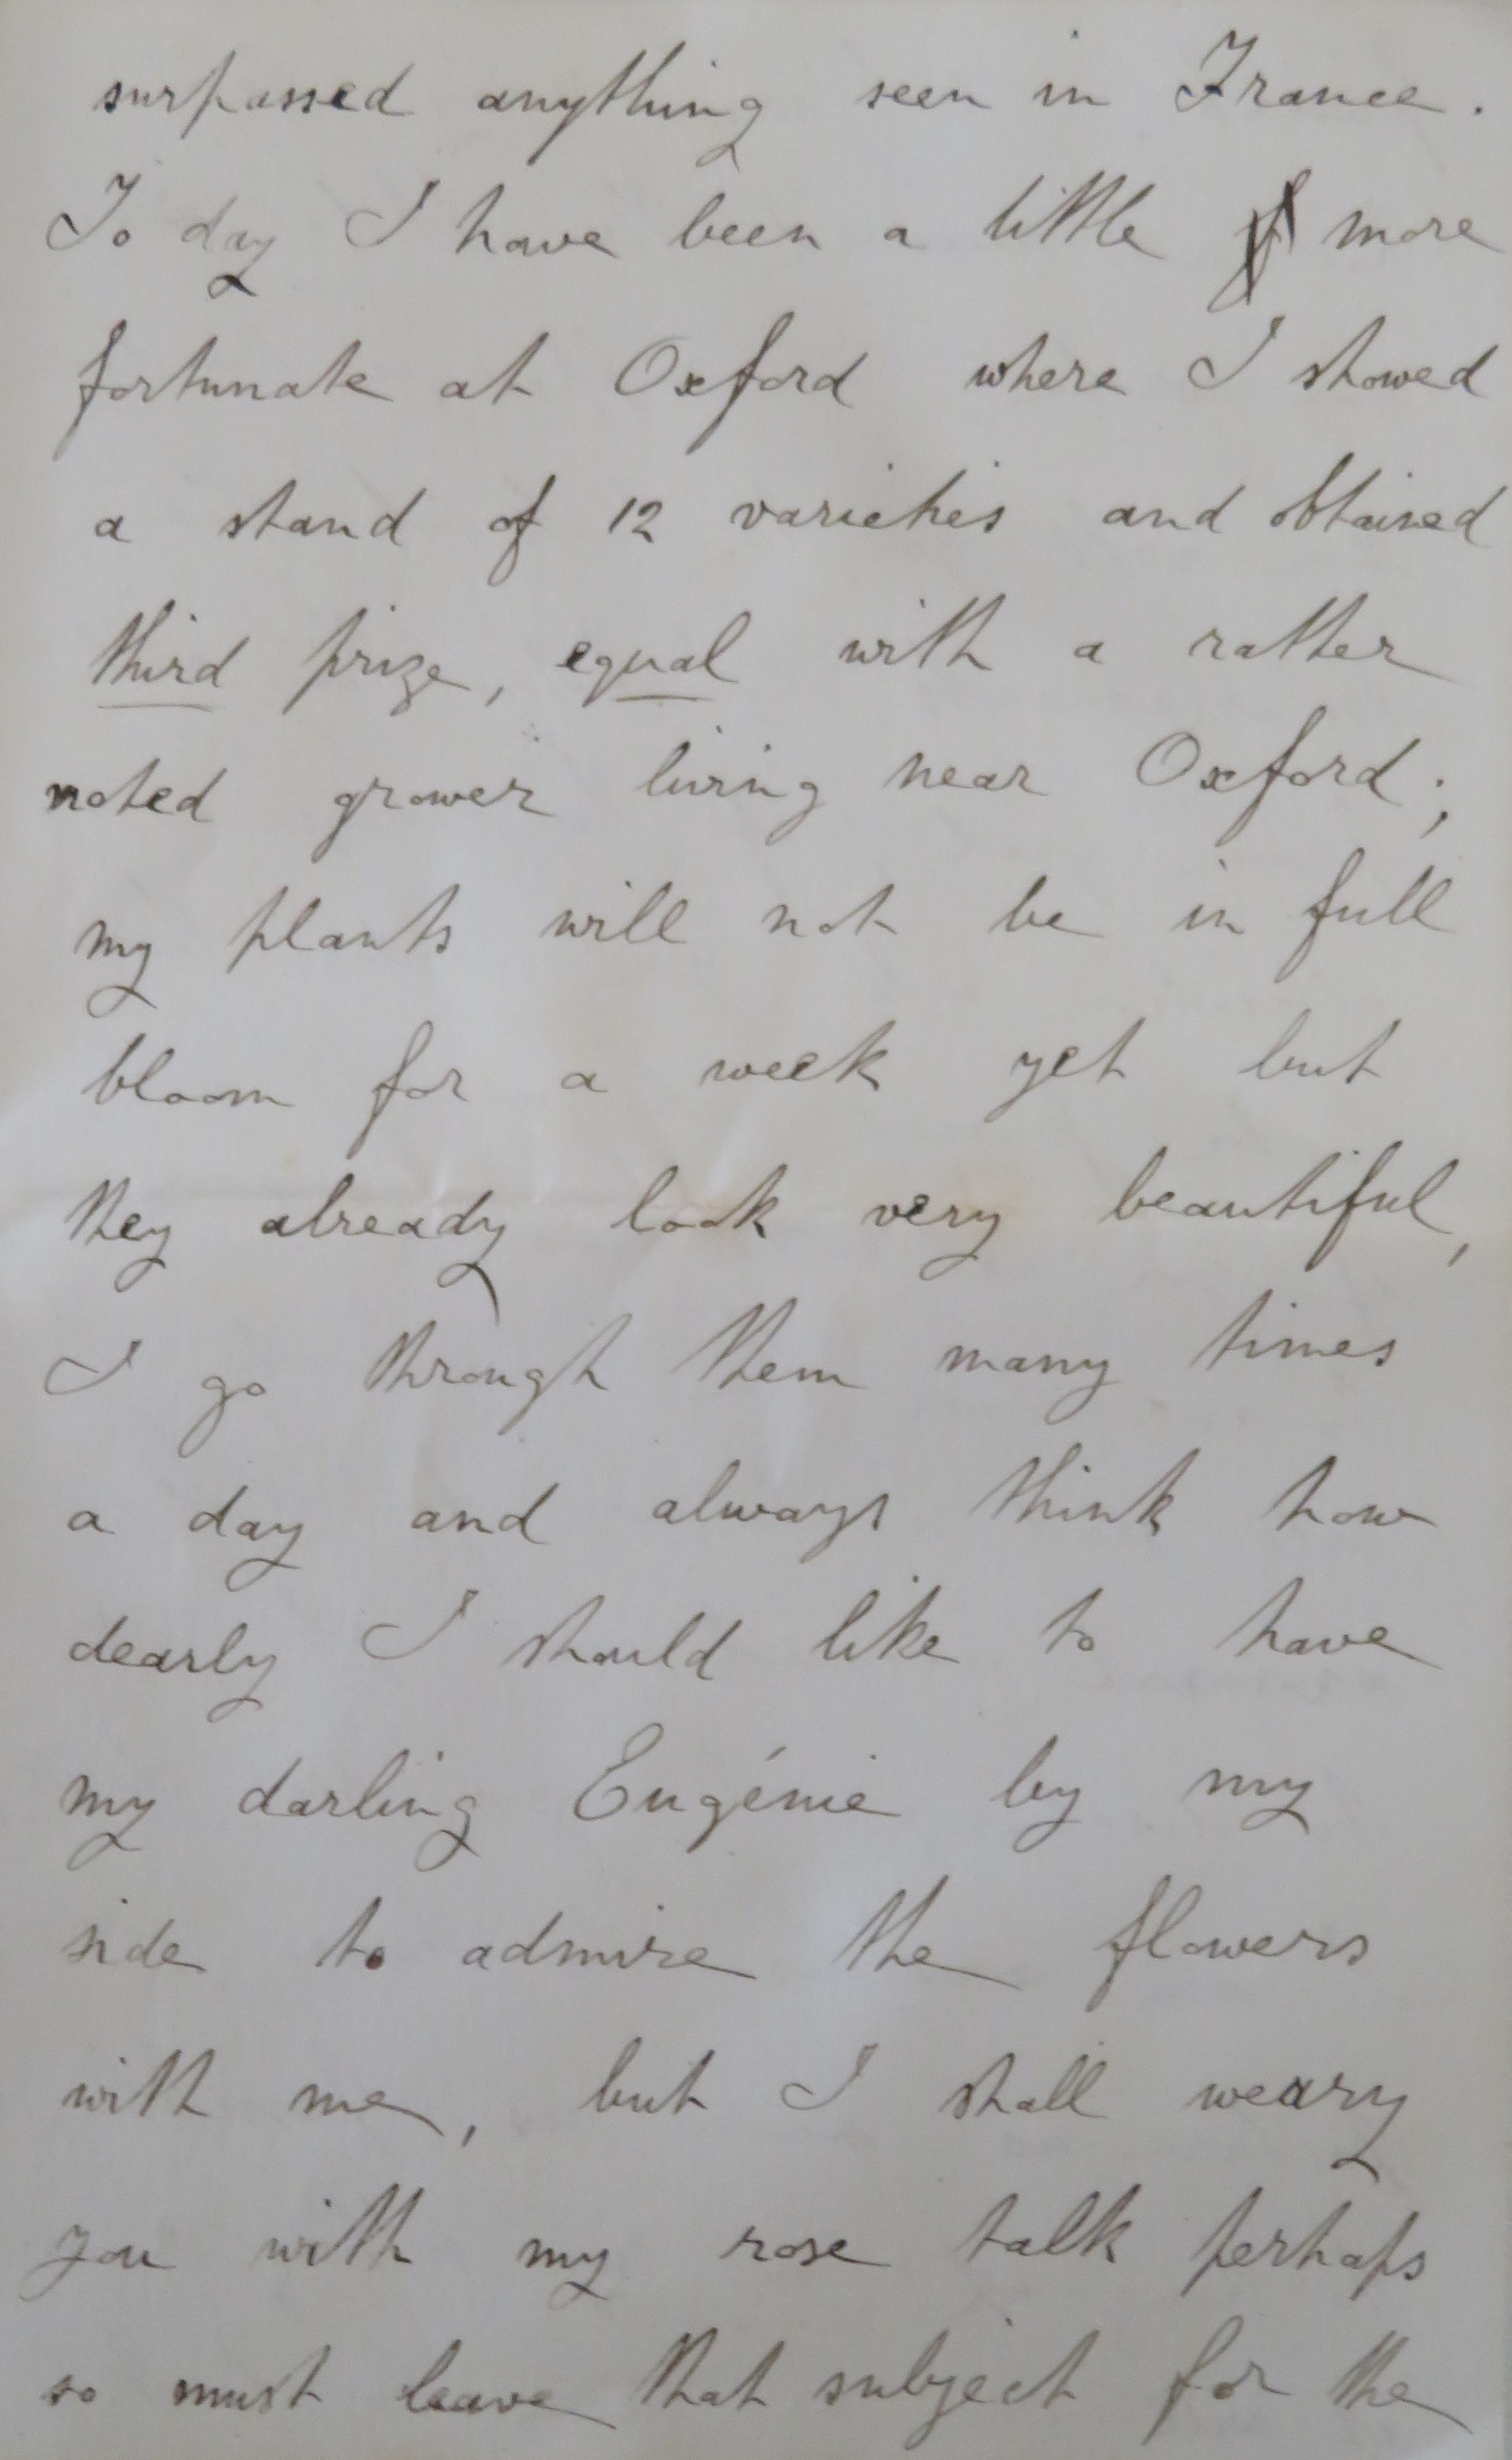 surpassed anything seen in France.
To day I have been a little more
fortunate at Oxford where I showed
a stand of 12 varieties and obtained
third prize, equal with a rather
noted grower living near Oxford;
my plants will not be in full
bloom for a week yet but
they already look very beautiful,
I go through them many times
a day and always think how
dearly I should like to have
my darling Eugénie by my
side to admire the flowers
with me, but I shall weary
you with my rose talk perhaps
so must leave that subject for the